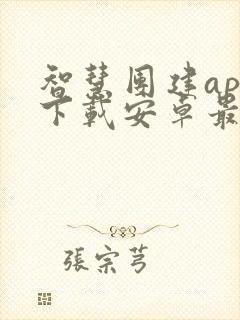 智慧團建ap
下載安卓最
張宗芎